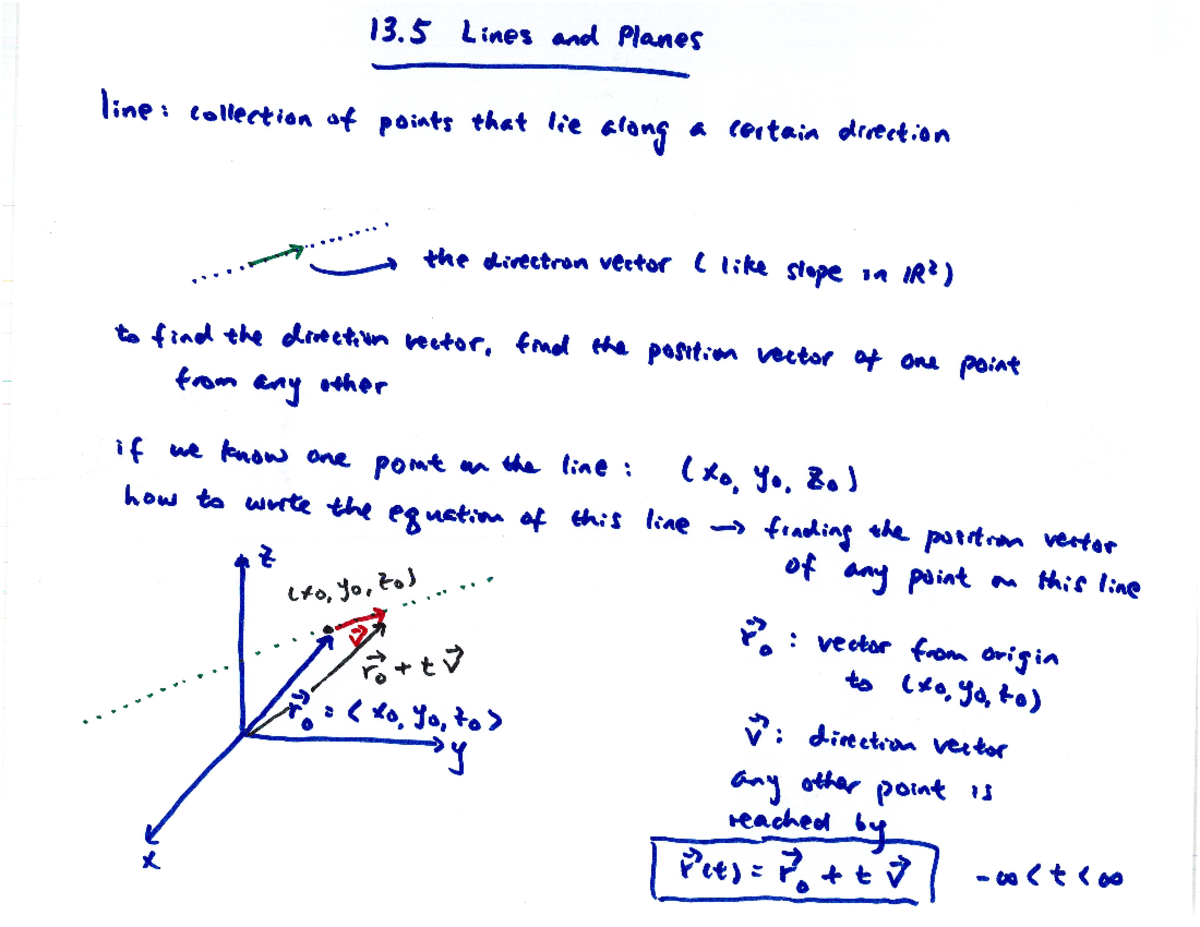 13.5 Lines and Planes
line: collection of points that lie along a certain direction
the direction vector (like slope in ℝ²)
to find the direction vector, find the position vector of one point
from any other
if we know one point on the line: (x₀, y₀, z₀)
how to write the equation of this line → finding the position vector
of any point on this line
z
(x₀, y₀, z₀)
v⃗
r⃗₀ + t v⃗
r⃗₀ = < x₀, y₀, z₀ >
y
x
r⃗₀ : vector from origin
to (x₀, y₀, z₀)
v⃗ : direction vector
any other point is
reached by
r⃗(t) = r⃗₀ + t v⃗ -∞ < t < ∞